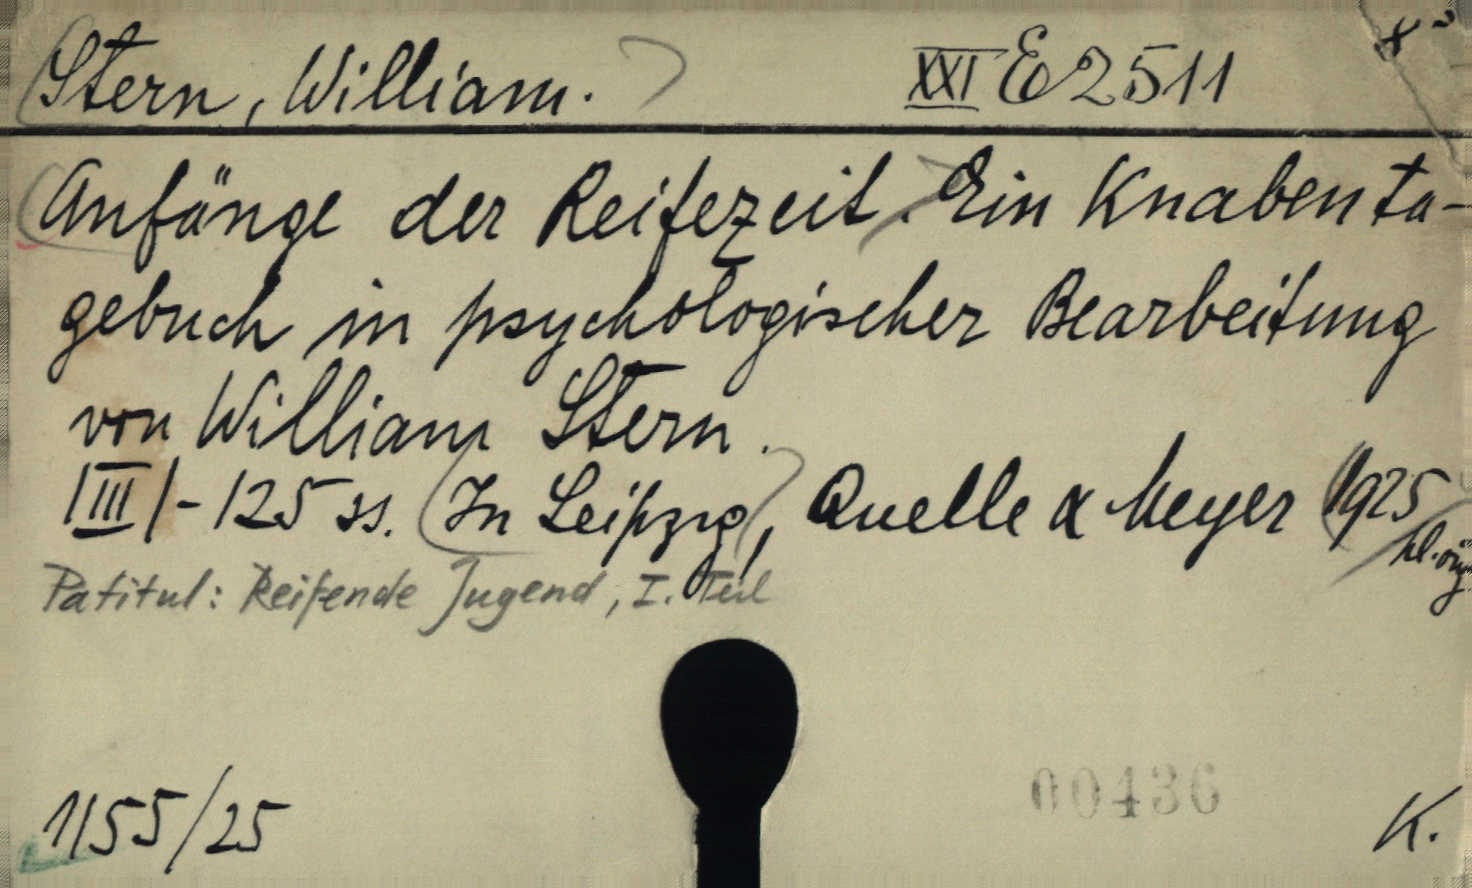 Stern, William. XXI E 2511 8°
Anfänge der Reifezeit. Ein Knabenta-
gebuch in psychologischer Bearbeitung
von William Stern.
|III|-125 ss. In Leipzig, Quelle & Meyer 1925
Patitul: Reifende Jugend, I. Teil
1155/25
00436
K.